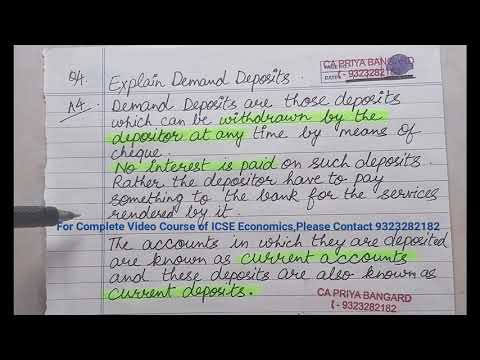 CA PRIYA BANGARD
PAGE NO.
DATE:
(- 9323282182
Q4. Explain Demand Deposits.
A4. Demand Deposits are those deposits
which can be withdrawn by the
depositor at any time by means of
cheque.
No interest is paid on such deposits.
Rather the depositor have to pay
something to the bank for the services
rendered by it.
For Complete Video Course of ICSE Economics,Please Contact 9323282182
The accounts in which they are deposited
are known as current accounts
and these deposits are also known as
current deposits.
CA PRIYA BANGARD
(- 9323282182